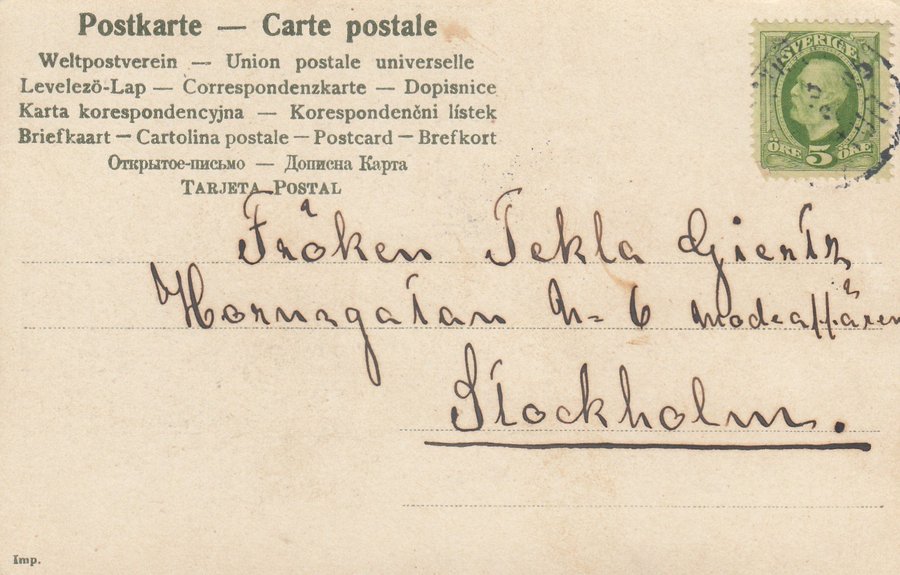 Postkarte — Carte postale
Weltpostverein — Union postale universelle
Levelező-Lap — Correspondenzkarte — Dopisnice
Karta korespondencyjna — Korespondenčni lístek
Briefkaart — Cartolina postale — Postcard — Brefkort
Открытое-письмо — Дописна Карта
TARJETA POSTAL
SVERIGE
ÖRE 5 ÖRE
Fröken Tekla Giertz
Hornsgatan n= 6 modeaffären
Stockholm.
Imp.